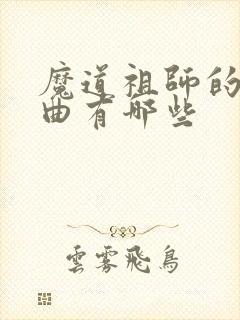 魔道祖師的
曲有哪些
雲霧飛鳥